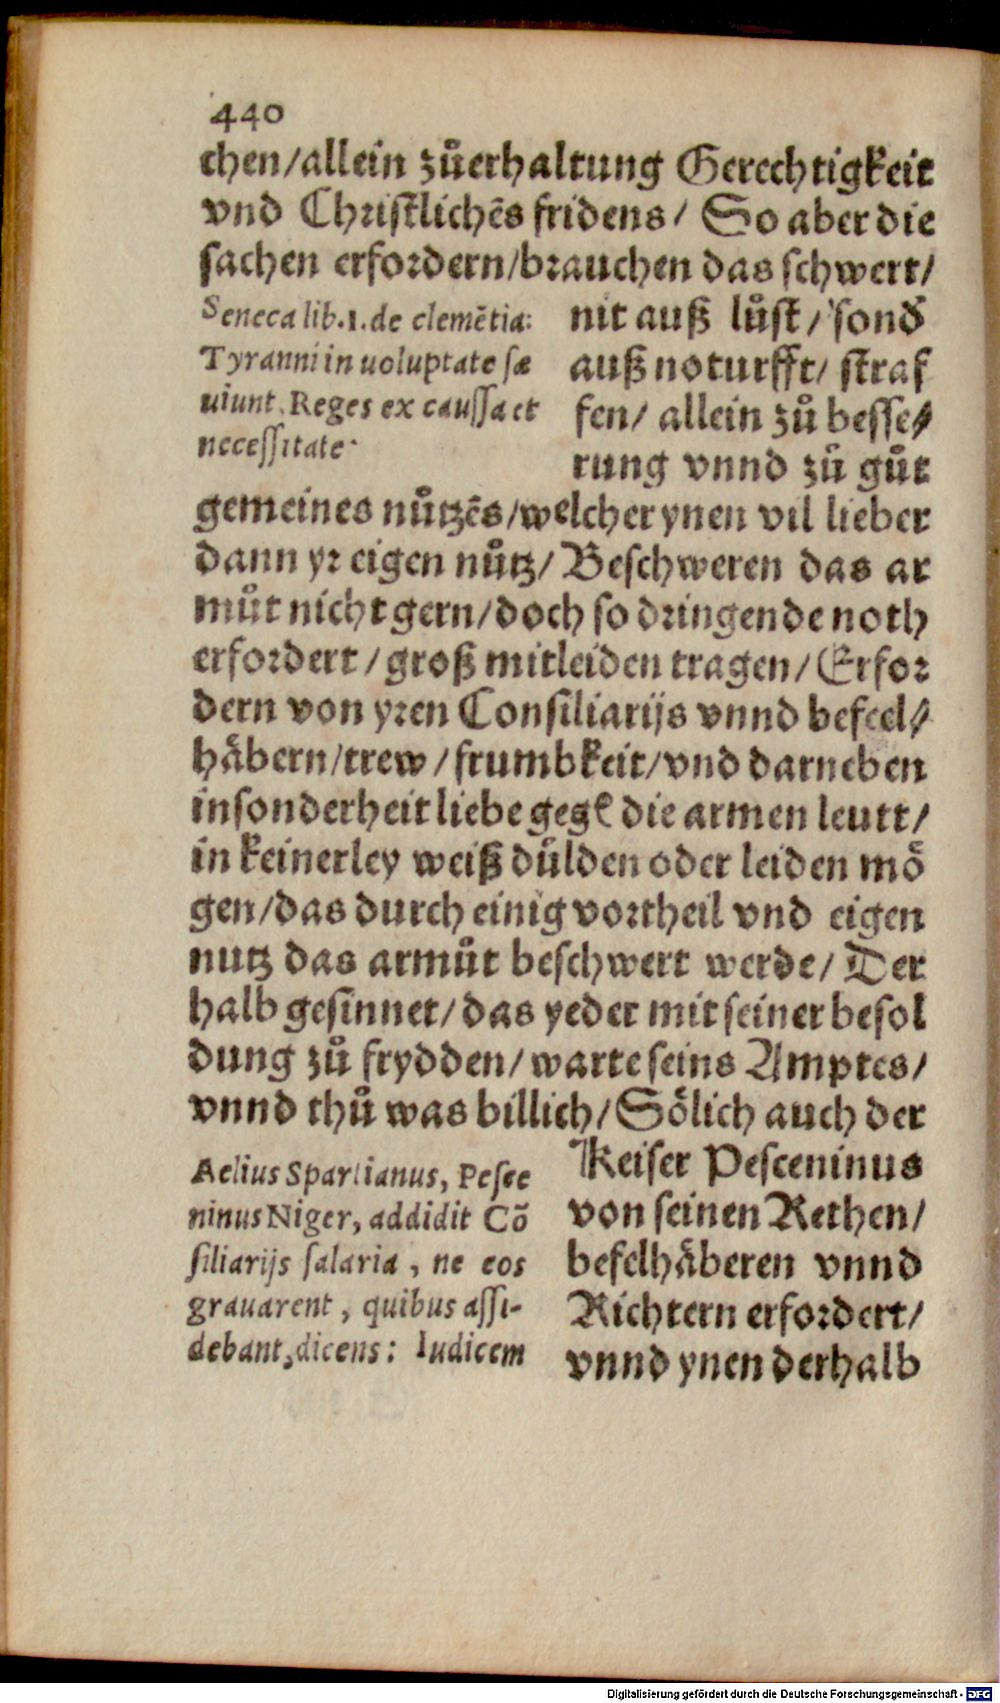 440
chen/allein zůerhaltung Gerechtigkeit
vnd Christlichēs fridens/ So aber die
sachen erfordern/brauchen das schwert/
Seneca lib.1.de clemētia:
Tyranni in uoluptate sæ
uiunt, Reges ex caussa et
necessitate.
nit auß lůst/ sond̄
auß noturfft/ straf
fen/ allein zů besse/
rung vnnd zů gůt
gemeines nůtzēs/welcher ynen vil lieber
dann yr eigen nůtz/ Beschweren das ar
můt nicht gern/doch so dringende noth
erfordert/groß mitleiden tragen/ Erfor
dern von yren Consiliarijs vnnd befeel/
håbern/trew/frumbkeit/vnd darneben
insonderheit liebe gegē die armen leutt/
in keinerley weiß důlden oder leiden mő
gen/das durch einig vortheil vnd eigen
nutz das armůt beschwert werde/ Der
halb gesinnet/das yeder mit seiner besol
dung zů frydden/warte seins Amptes/
vnnd thů was billich/Sőlich auch der
Aelius Spartianus, Pesce
ninus Niger, addidit Cō
siliarijs salaria, ne eos
grauarent, quibus assi-
debant, dicens: Iudicem
Keiser Pesceninus
von seinen Rethen/
befelhåberen vnnd
Richtern erfordert/
vnnd ynen derhalb
Digitalisierung gefördert durch die Deutsche Forschungsgemeinschaft - DFG